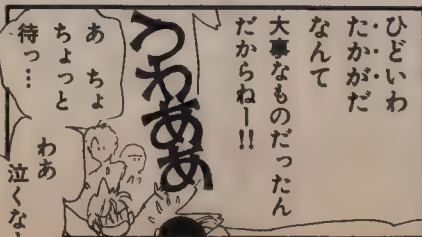 ひどいわ
たかがだ
なんて
大事なものだったん
だからねー!!
うわああ
あ ちょ
ちょっと
待っ…
わあ
泣くな